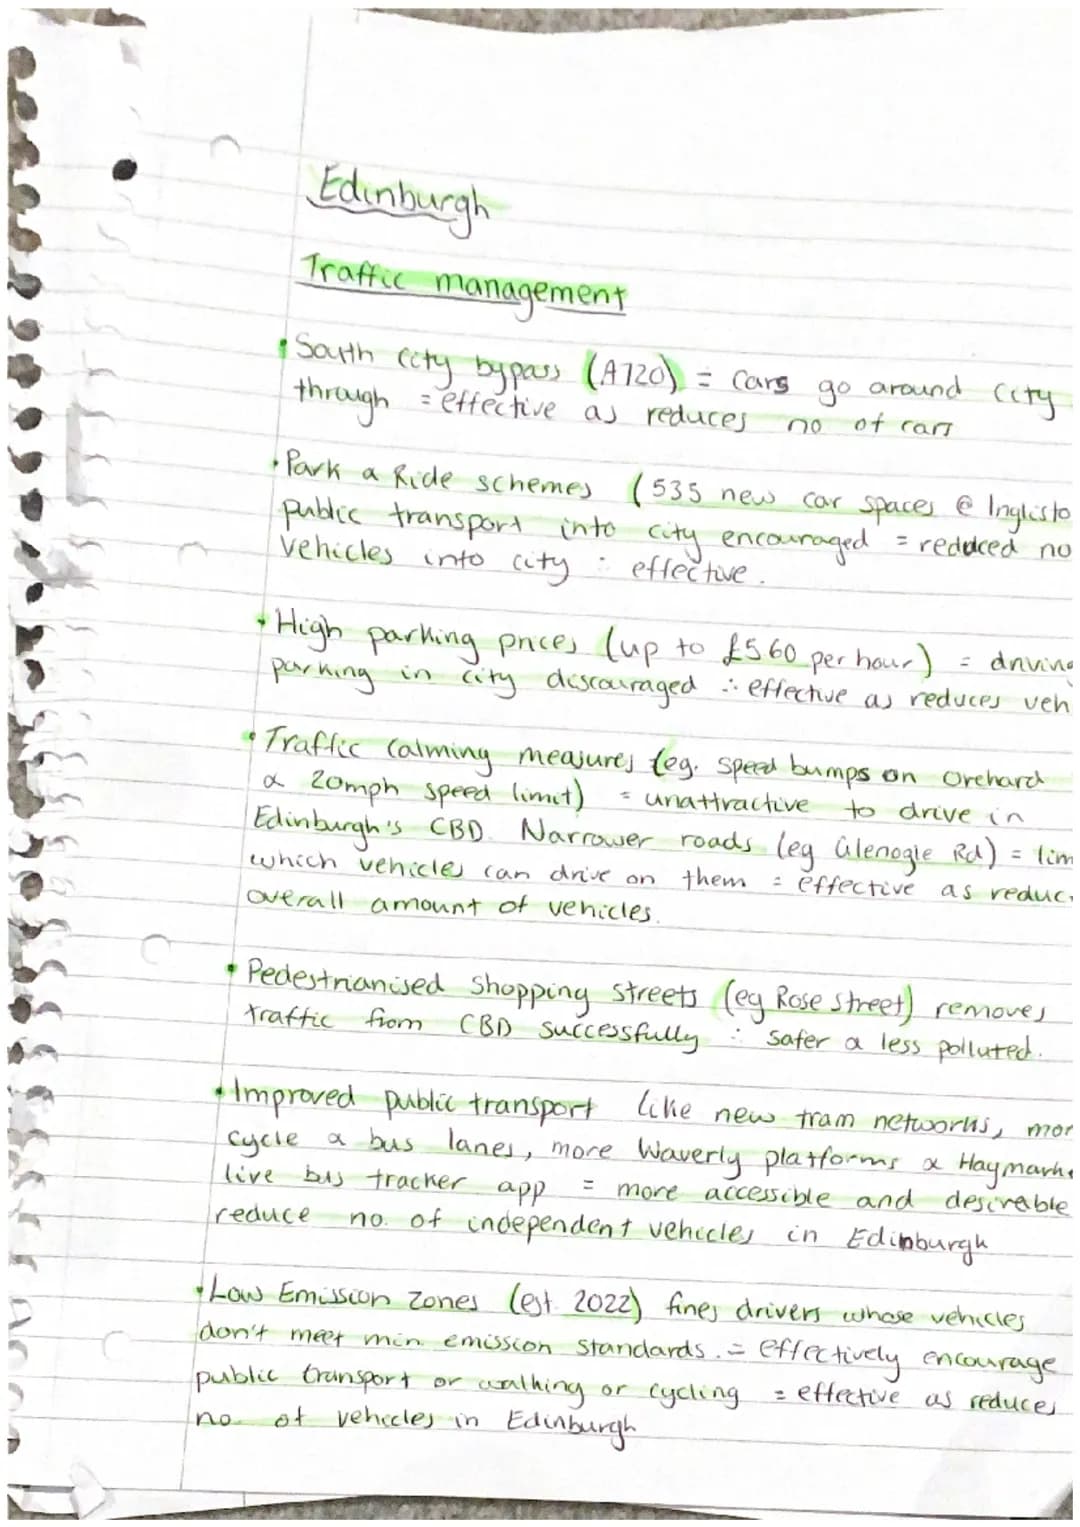 Edinburgh
Traffic management
• South city bypass (A720) = cars go around city
through = effective as reduces no of cars
• Park & Ride schemes (535 new car spaces @ Inglisto
public transport into city encouraged = reduced no
vehicles into city ∴ effective.
• High parking prices (up to £560 per hour) = driving
parking in city discouraged ∴ effective as reduces veh
• Traffic calming measures (eg. speed bumps on Orchard
& 20mph speed limit) = unattractive to drive in
Edinburgh's CBD. Narrower roads (eg Glenogle Rd) = lim
which vehicles can drive on them = effective as reduc
overall amount of vehicles.
• Pedestrianised shopping streets (eg Rose street) removes
traffic from CBD successfully ∴ safer & less polluted.
• Improved public transport like new tram networks, mor
cycle & bus lanes, more Waverly platforms & Haymark
live bus tracker app = more accessible and desirable
reduce no. of independent vehicles in Edinburgh
• Low Emission Zones (est. 2022) fines drivers whose vehicles
don't meet min. emission standards. = effectively encourage
public transport or walking or cycling = effective as reduces
no. of vehicles in Edinburgh